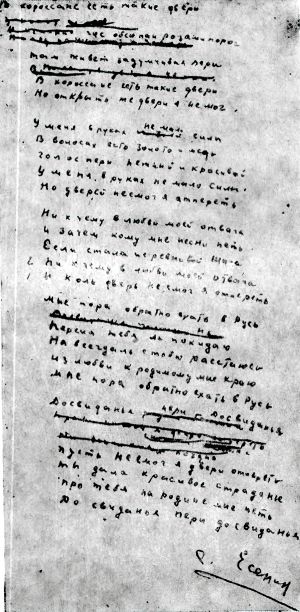 В хороссане есть такие двери
обсыпан розами порог
Там живет задумчивая пери
В хороссане есть такие двери
Но открыть те двери я не мог.
У меня в руках не мало силы
В волосах есть золото и медь
Голос пери нежный и красивый
У меня в руках не мало силы
Но дверей не смог я отпереть
Ни к чему в любви моей отвага
И зачем кому мне песни петь
Если стала неревнивой Шага
Ни к чему в любви моей отвага
И коль дверь не смог я отпереть
Мне пора обратно ехать в Русь
Персия тебя ль покидаю
На всегда ль с тобою расстаюсь
Из любви к родимому мне краю
Мне пора обратно ехать в Русь
Досвиданья пери Досвиданья
Пусть не смог я двери отпереть
Ты дала красивое страданье
Про тебя на родине мне петь
До свиданья пери до свиданья
С. Есенин